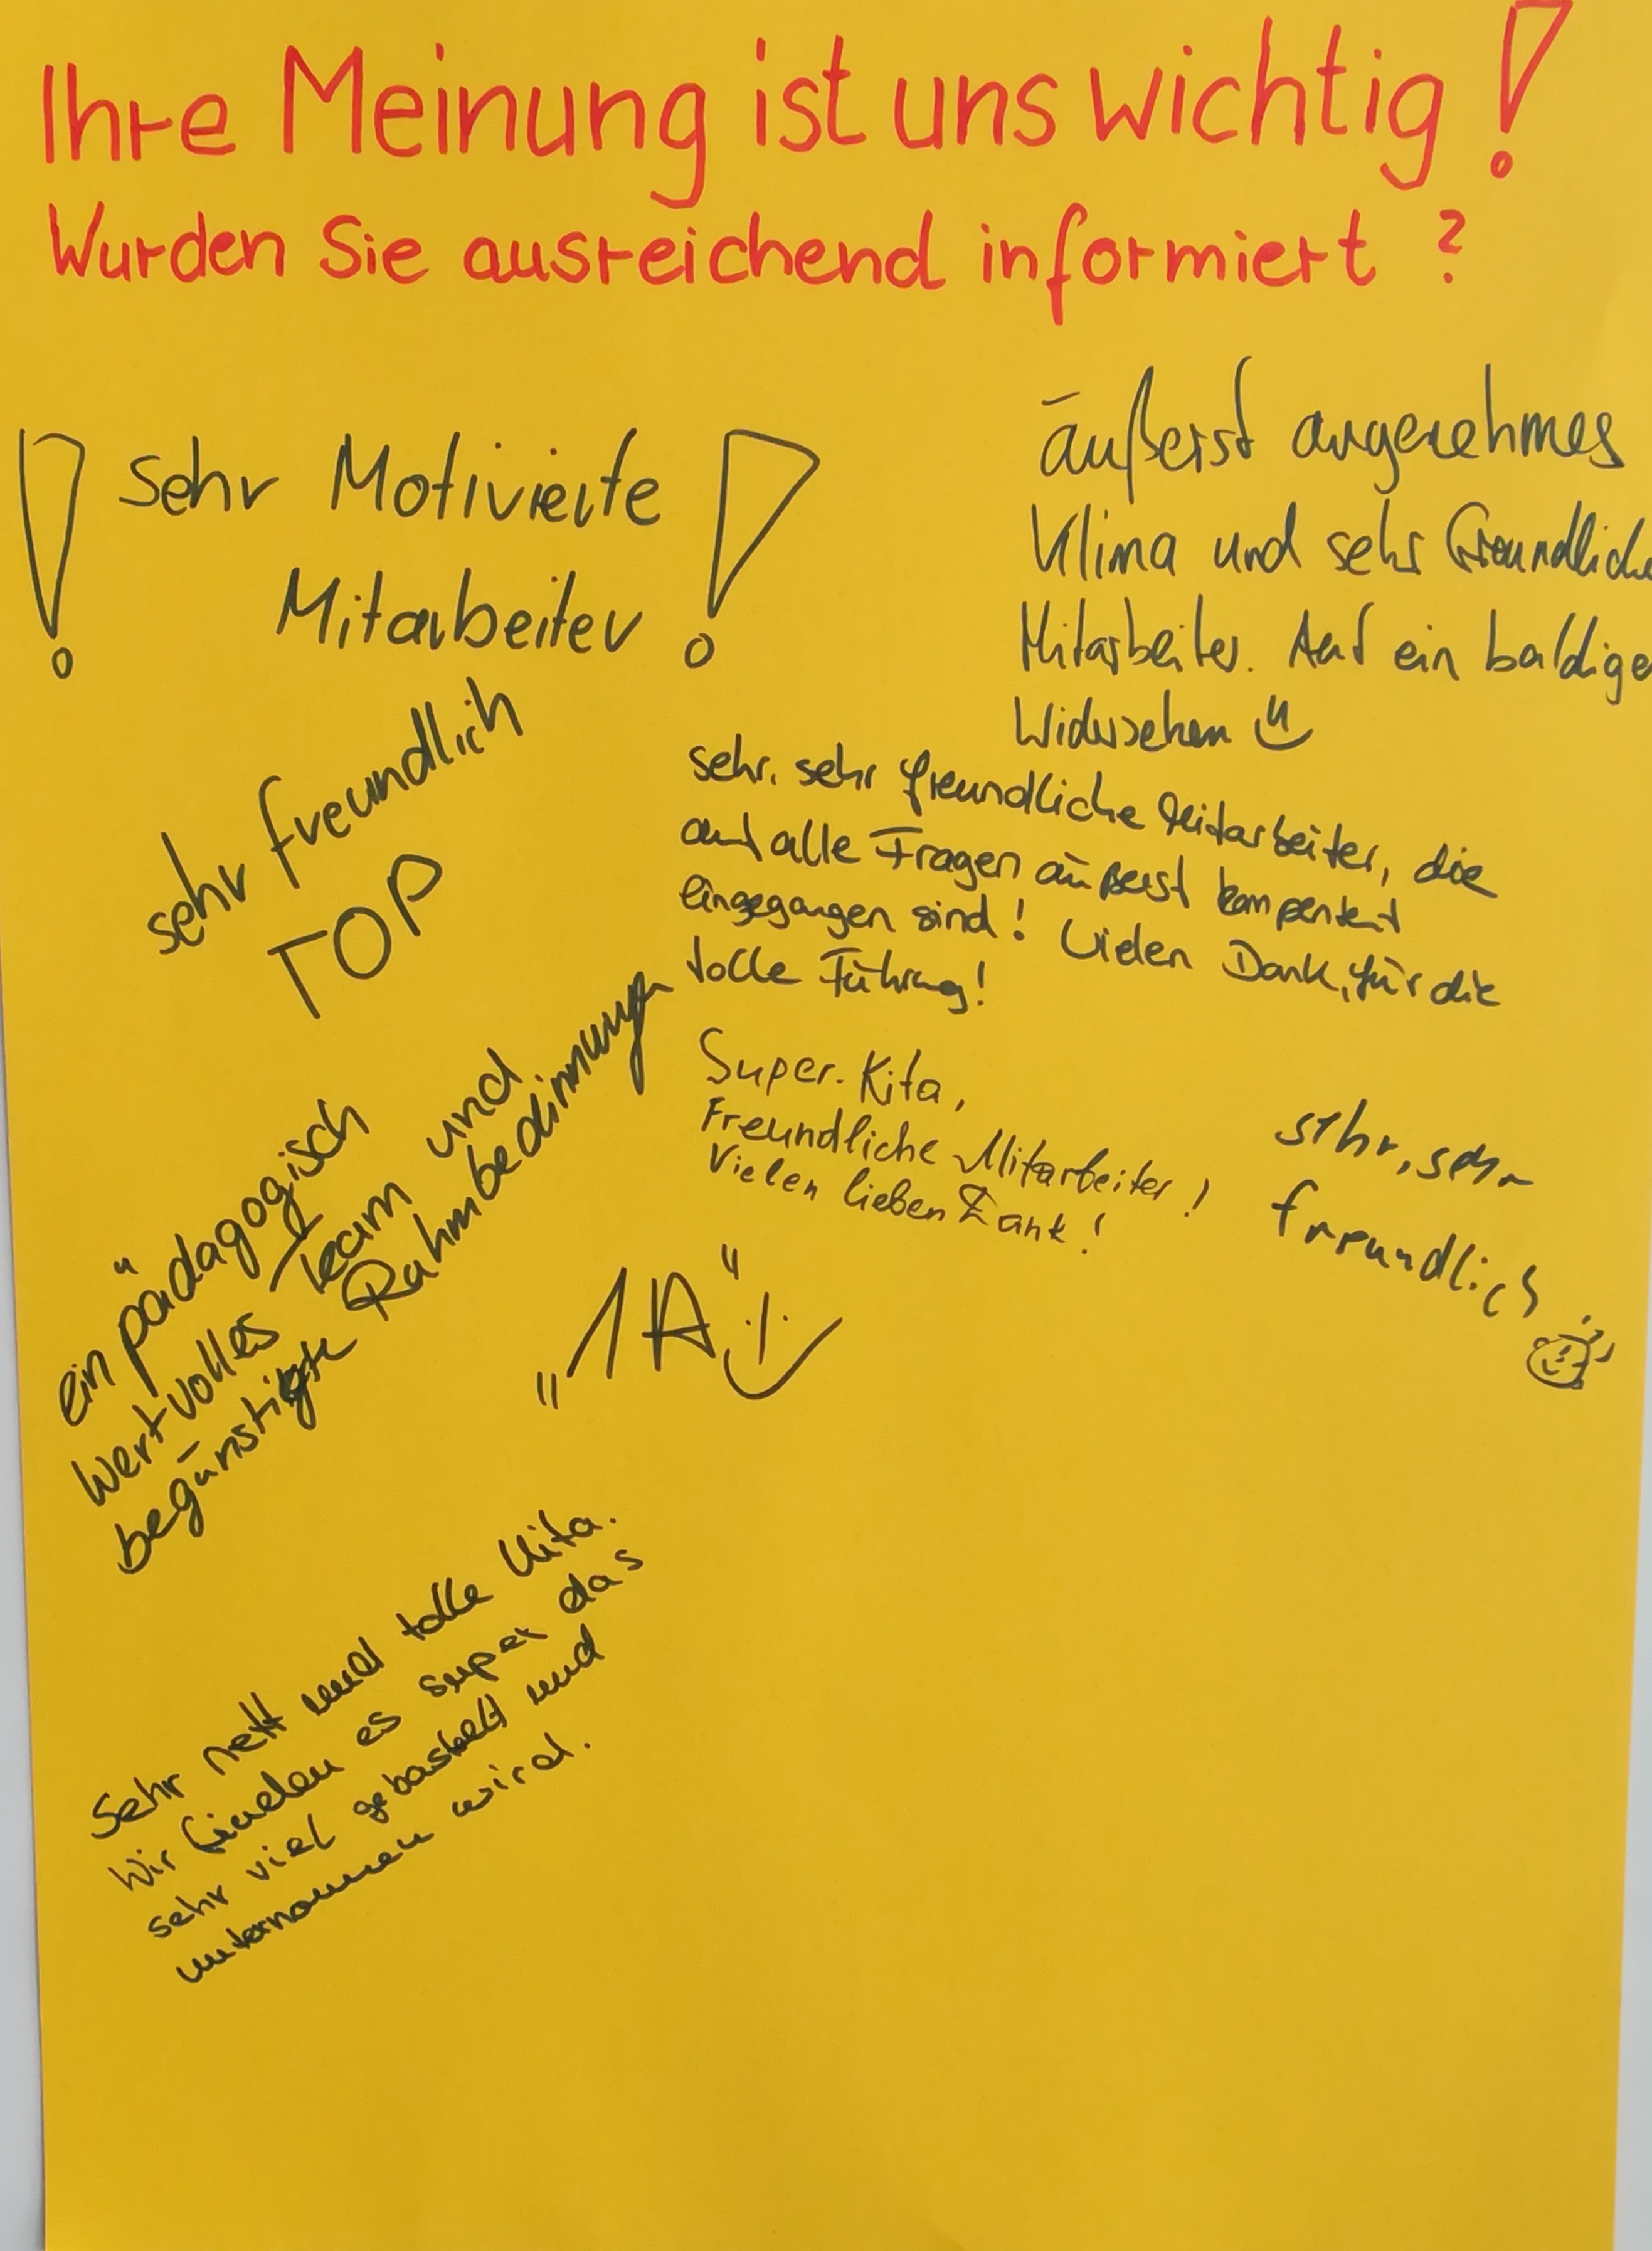 Ihre Meinung ist uns wichtig!
Wurden Sie ausreichend informiert?
! Sehr Motivierte
Mitarbeiter !
äußerst angenehmes
Klima und sehr freundliche
Mitarbeiter. Auf ein baldige
Widersehen
sehr freundlich
TOP
sehr, sehr freundliche Mitarbeiter, die
auf alle Fragen äußerst kompentent
eingegangen sind! Vielen Dank, für die
tolle Führung!
Super Kita,
Freundliche Mitarbeiter!
Vielen lieben Dank!
sehr, sehr
freundlich
ein pädagogisch
wertvolles Team und
begünstigte Rahmbedinnungen
„1A"
Sehr nett und tolle Kita.
Wir finden es super das
sehr viel gebastelt und
unternommen wird.